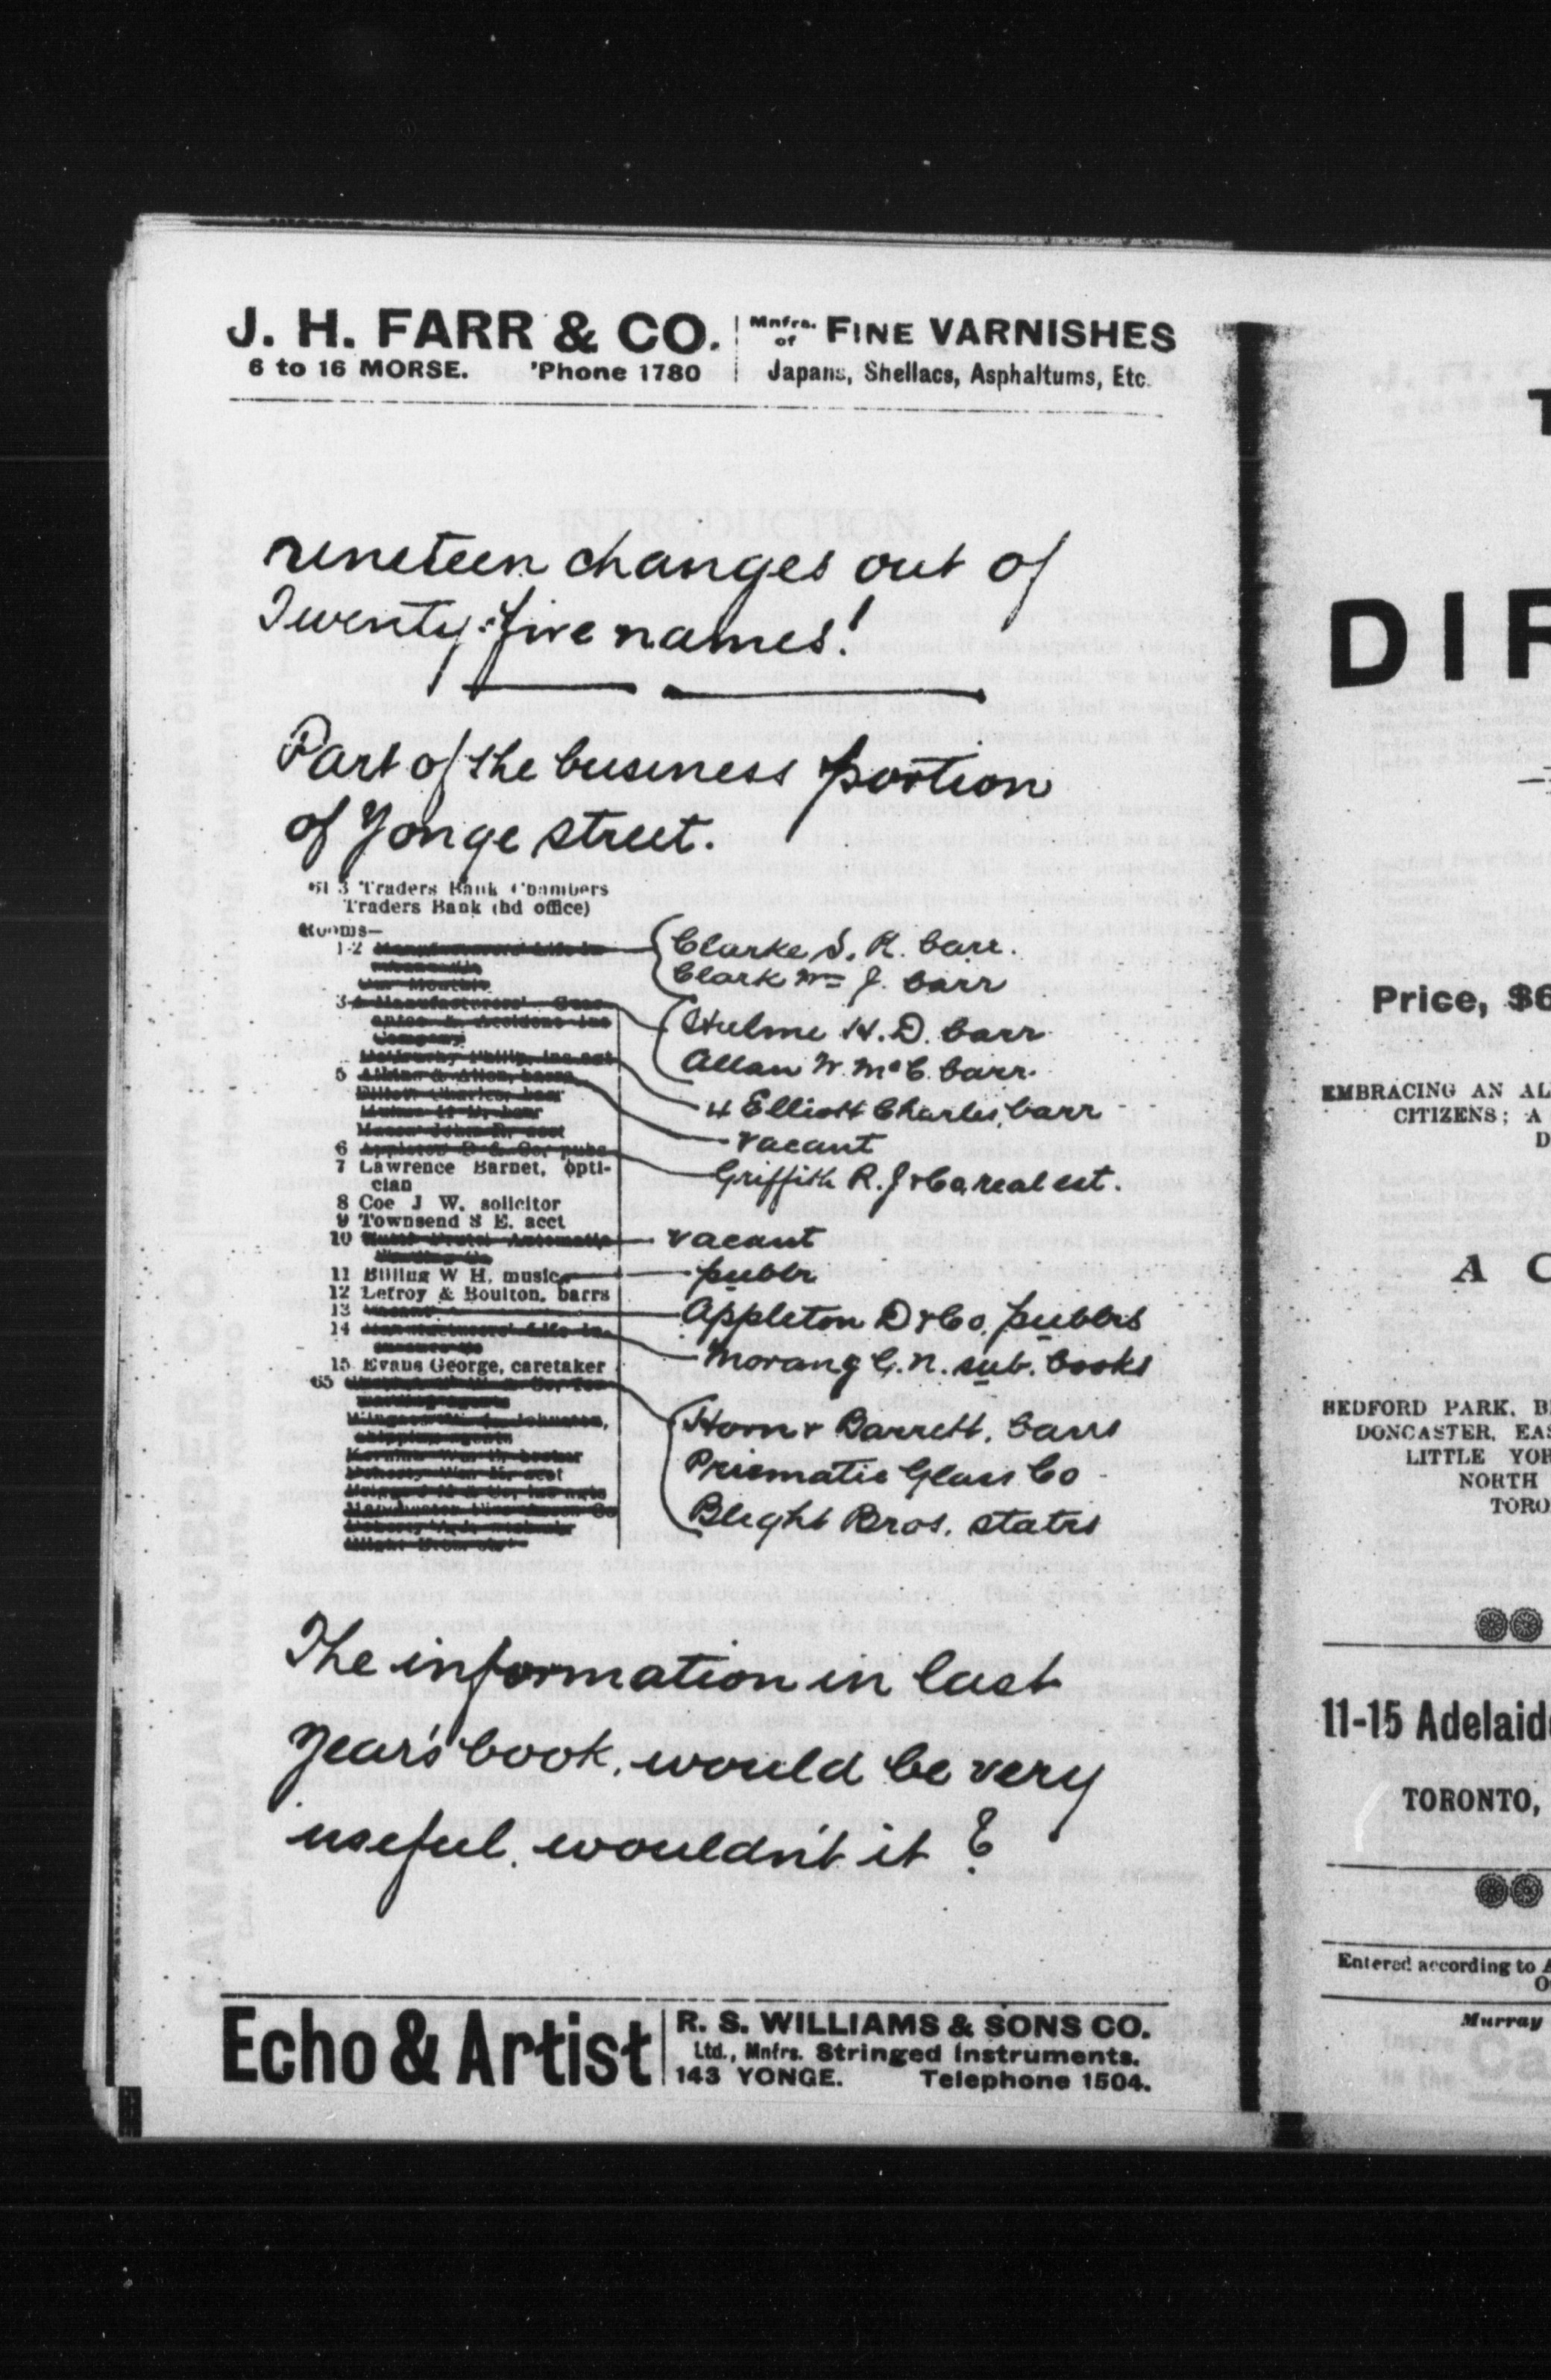 J. H. FARR & CO.
6 to 16 MORSE. 'Phone 1780
Mnfrs. of FINE VARNISHES
Japans, Shellacs, Asphaltums, Etc.
nineteen changes out of
Twenty-five names!
Part of the business portion
of Yonge street.
61 3 Traders Bank Chambers
Traders Bank (hd office)
Rooms—
1-2
Clarke S. R. barr.
Clark Wm J. barr
3-4 Manufacturers' Guar-
antee & Accident Ins
Company
Hulme H. D. barr
Allan W. McC. barr.
4 Elliott Charles, barr
5
vacant
6 Appleton D & Co, pubs
Griffith R. J & Co, real est.
7 Lawrence Barnet, opti-
cian
8 Coe J W, solicitor
9 Townsend S E, acct
10
vacant
11 Billing W H, music
publr
12 Lefroy & Boulton, barrs
13 vacant
Appleton D & Co, publrs
14 Manufacturers' Life In-
surance Co
Morang G. N. sub. books
15 Evans George, caretaker
65
Horn & Barrett, barrs
Prismatic Glass Co
Blight Bros. statrs
The information in last
Year's book, would be very
useful, wouldn't it ?
Echo & Artist
R. S. WILLIAMS & SONS CO.
Ltd., Mnfrs. Stringed Instruments.
143 YONGE. Telephone 1504.
T
DIR
Price, $6
EMBRACING AN AL
CITIZENS; A
D
A C
BEDFORD PARK, B
DONCASTER, EAS
LITTLE YOR
NORTH
TORO
11-15 Adelaide
TORONTO,
Entered according to A
O
Murray